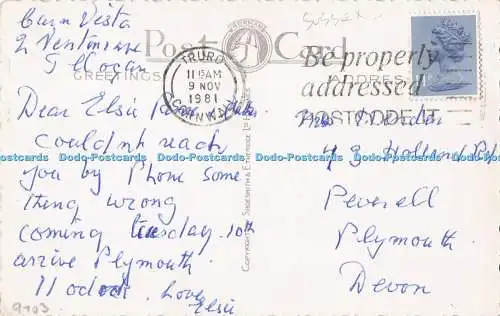 Carn Vista
2 Ventonraze
Illogan
Post Card
GREETINGS
ADDRESS
SUSSEX
TRURO
11 15AM
9 NOV
1981
CORNWALL
Be properly
addressed
POSTCODE IT
COPYRIGHT SHOESMITH & ETHERIDGE LTD
Dear Elsie
Couldn't reach
you by Phone some
thing wrong
coming tuesday 10th
arrive Plymouth
11 oclock. Love
Elsie
Mrs
49 Holland Rd
Peverell
Plymouth
Devon
9103
Dodo-Postcards Dodo-Postcards Dodo-Postcards Dodo-Postcards Dodo-Postcards Dodo-Postcards